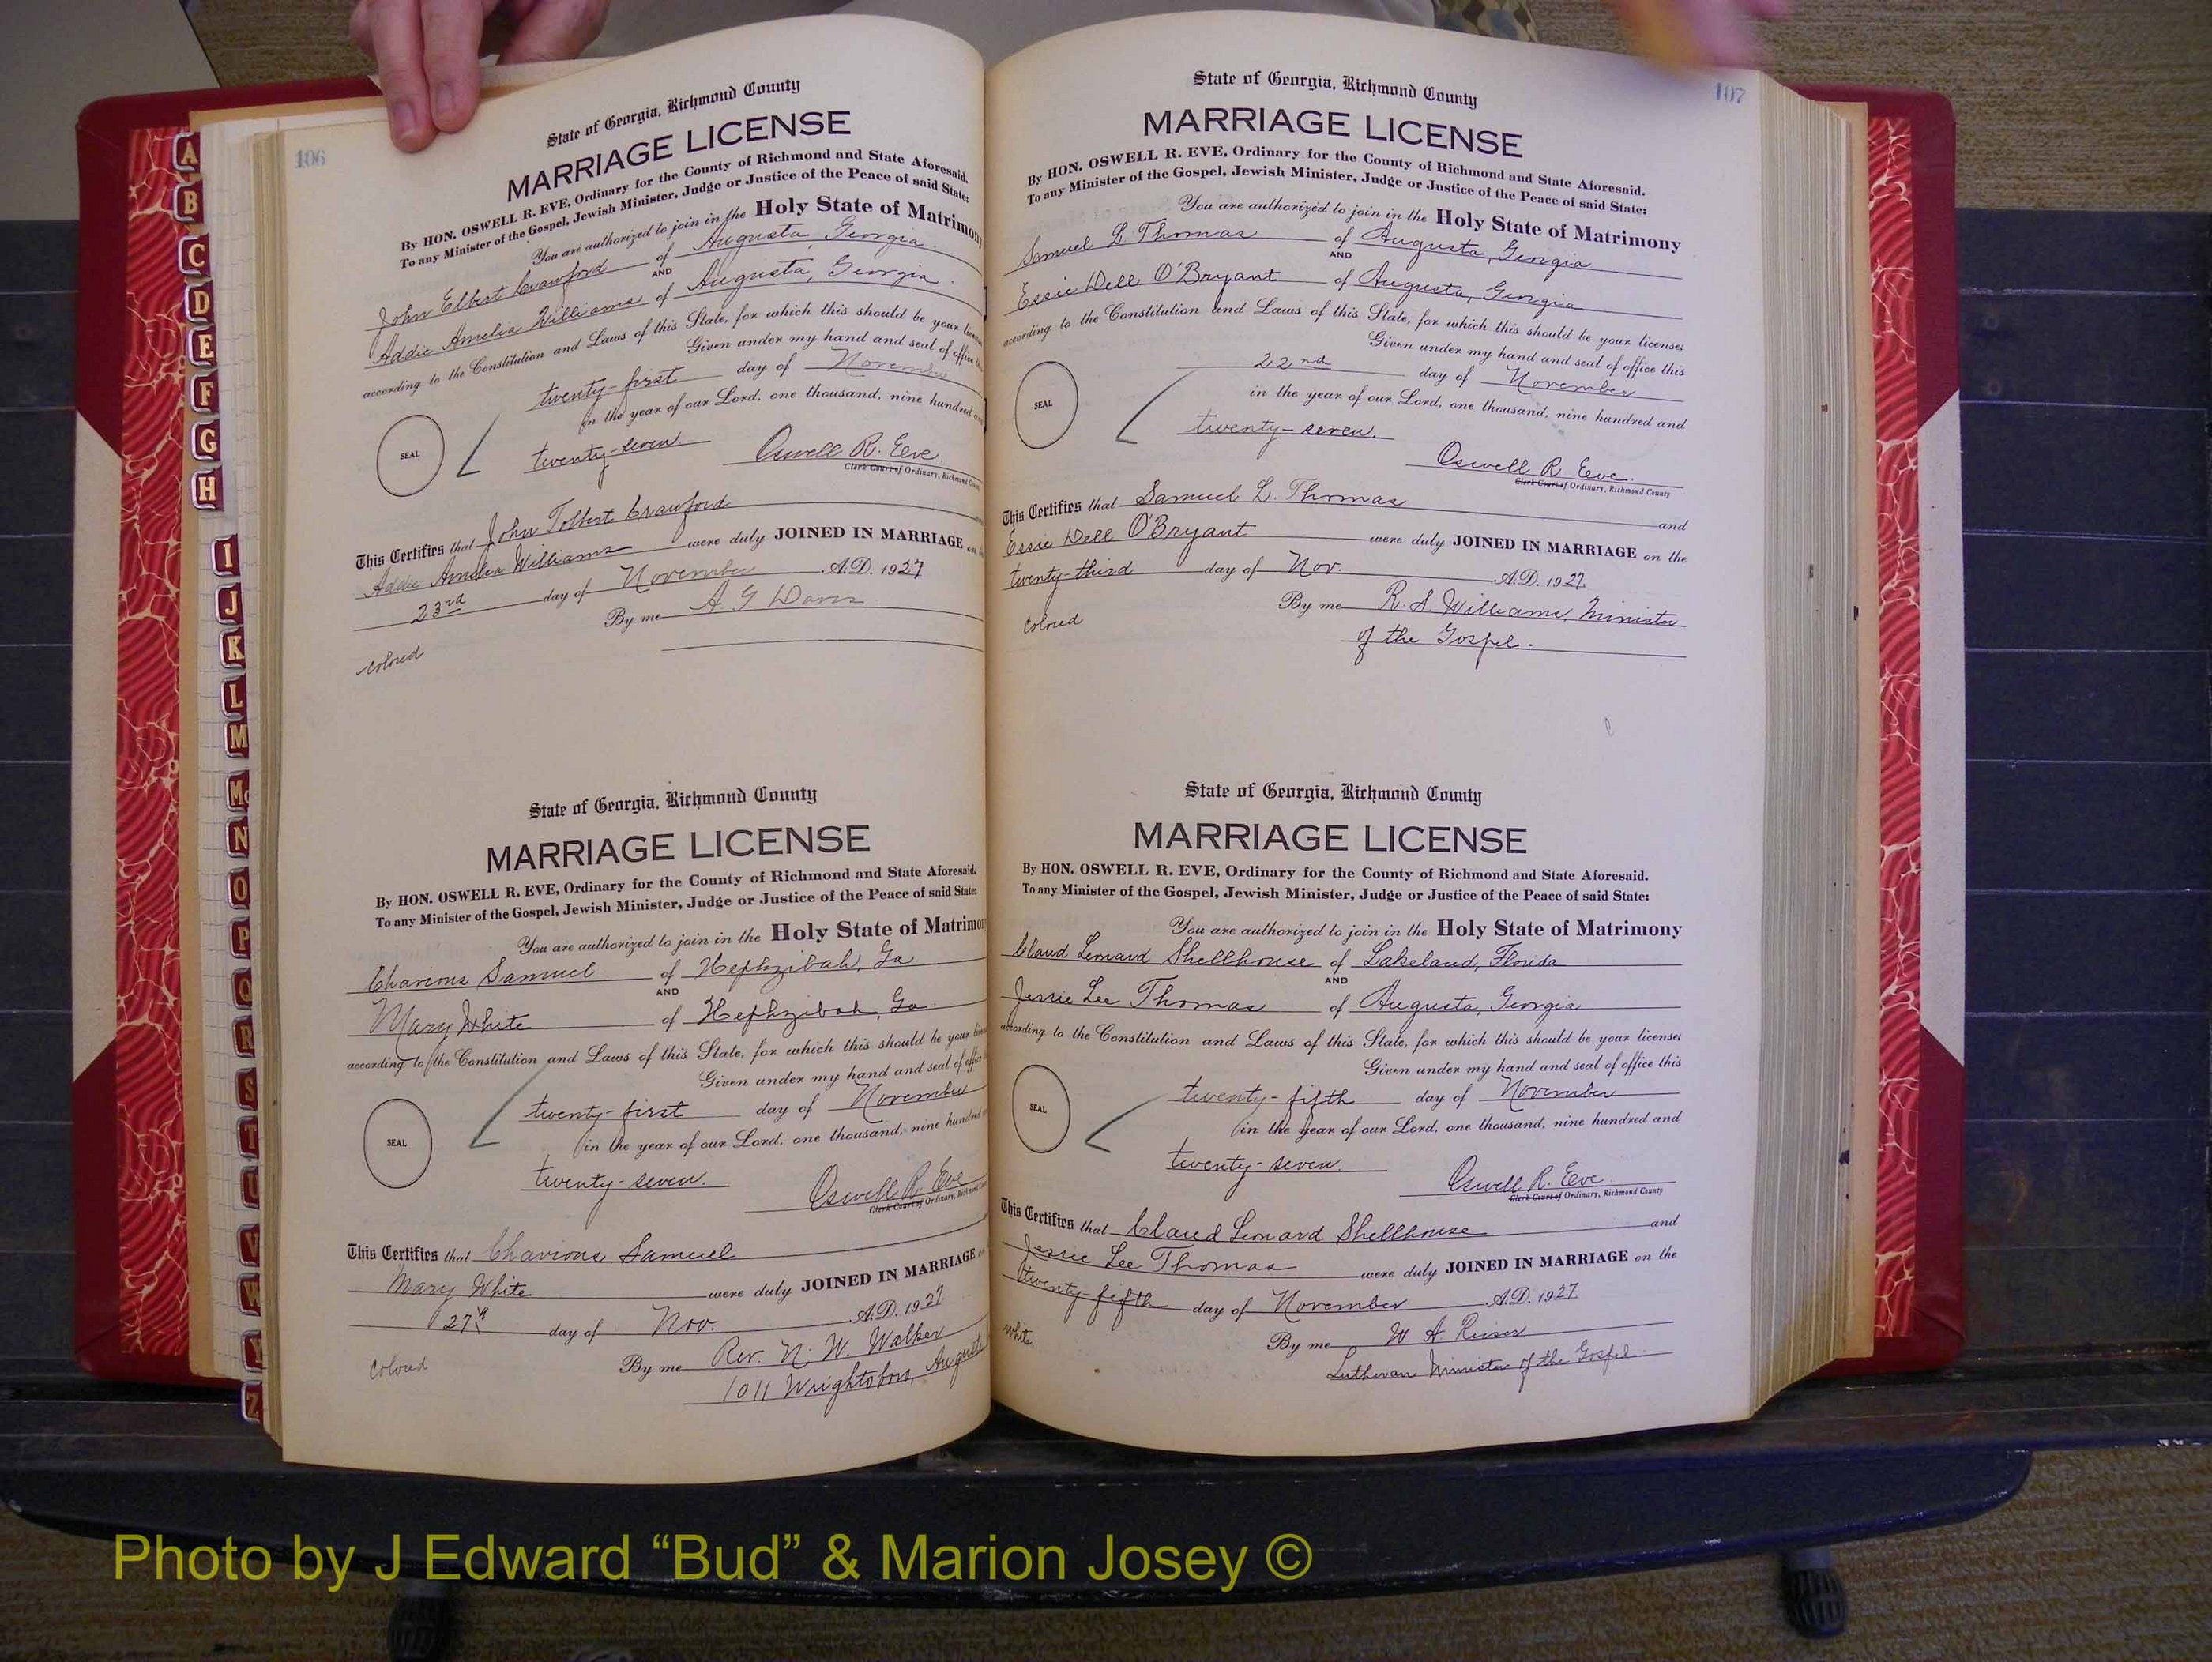 106
State of Georgia, Richmond County
MARRIAGE LICENSE
By HON. OSWELL R. EVE, Ordinary for the County of Richmond and State Aforesaid.
To any Minister of the Gospel, Jewish Minister, Judge or Justice of the Peace of said State:
You are authorized to join in the Holy State of Matrimony
John Elbert Crawford of Augusta, Georgia.
AND
Addie Amelia Williams of Augusta, Georgia.
according to the Constitution and Laws of this State, for which this should be your license
Given under my hand and seal of office
twenty-first day of November
in the year of our Lord, one thousand, nine hundred
SEAL
twenty-seven
Oswell R. Eve.
Clerk Court of Ordinary, Richmond County
This Certifies that John Tolbert Crawford
Addie Amelia Williams were duly JOINED IN MARRIAGE on
23rd day of November A.D. 1927
By me A G Davis
colored
State of Georgia, Richmond County
MARRIAGE LICENSE
By HON. OSWELL R. EVE, Ordinary for the County of Richmond and State Aforesaid.
To any Minister of the Gospel, Jewish Minister, Judge or Justice of the Peace of said State:
You are authorized to join in the Holy State of Matrimon
Chavious Samuel of Hephzibah, Ga
AND
Mary White of Hephzibah, Ga.
according to the Constitution and Laws of this State, for which this should be your
Given under my hand and seal of office
twenty-first day of November
in the year of our Lord, one thousand, nine hundred
SEAL
twenty-seven.
Oswell R. Eve
Clerk Court of Ordinary, Richmond
This Certifies that Chavious Samuel
Mary White were duly JOINED IN MARRIAGE
27th day of Nov. A.D. 1927
By me Rev. N. W. Walker
1011 Wrightsboro, Augusta
Colored
107
State of Georgia, Richmond County
MARRIAGE LICENSE
By HON. OSWELL R. EVE, Ordinary for the County of Richmond and State Aforesaid.
To any Minister of the Gospel, Jewish Minister, Judge or Justice of the Peace of said State:
You are authorized to join in the Holy State of Matrimony
Samuel L Thomas of Augusta, Georgia
AND
Essie Dell O'Bryant of Augusta, Georgia
according to the Constitution and Laws of this State, for which this should be your license;
Given under my hand and seal of office this
22nd day of November
in the year of our Lord, one thousand, nine hundred and
SEAL
twenty-seven.
Oswell R. Eve.
Clerk Court of Ordinary, Richmond County
This Certifies that Samuel L. Thomas and
Essie Dell O'Bryant were duly JOINED IN MARRIAGE on the
twenty-third day of Nov. A.D. 1927.
By me R. S. Williams, Minister
of the Gospel.
Colored
State of Georgia, Richmond County
MARRIAGE LICENSE
By HON. OSWELL R. EVE, Ordinary for the County of Richmond and State Aforesaid.
To any Minister of the Gospel, Jewish Minister, Judge or Justice of the Peace of said State:
You are authorized to join in the Holy State of Matrimony
Claud Lenard Shellhouse of Lakeland, Florida
AND
Jessie Lee Thomas of Augusta, Georgia
according to the Constitution and Laws of this State, for which this should be your license;
Given under my hand and seal of office this
twenty-fifth day of November
in the year of our Lord, one thousand, nine hundred and
SEAL
twenty-seven.
Oswell R. Eve.
Clerk Court of Ordinary, Richmond County
This Certifies that Claud Leonard Shellhouse and
Jessie Lee Thomas were duly JOINED IN MARRIAGE on the
twenty-fifth day of November A.D. 1927
By me W A Reiser
Lutheran Minister of the Gospel.
white
A
B
C
D
E
F
G
H
I
J
K
L
M
Mc
N
O
P
Q
R
S
T
U
V
W
Y
Z
Photo by J Edward “Bud” & Marion Josey ©